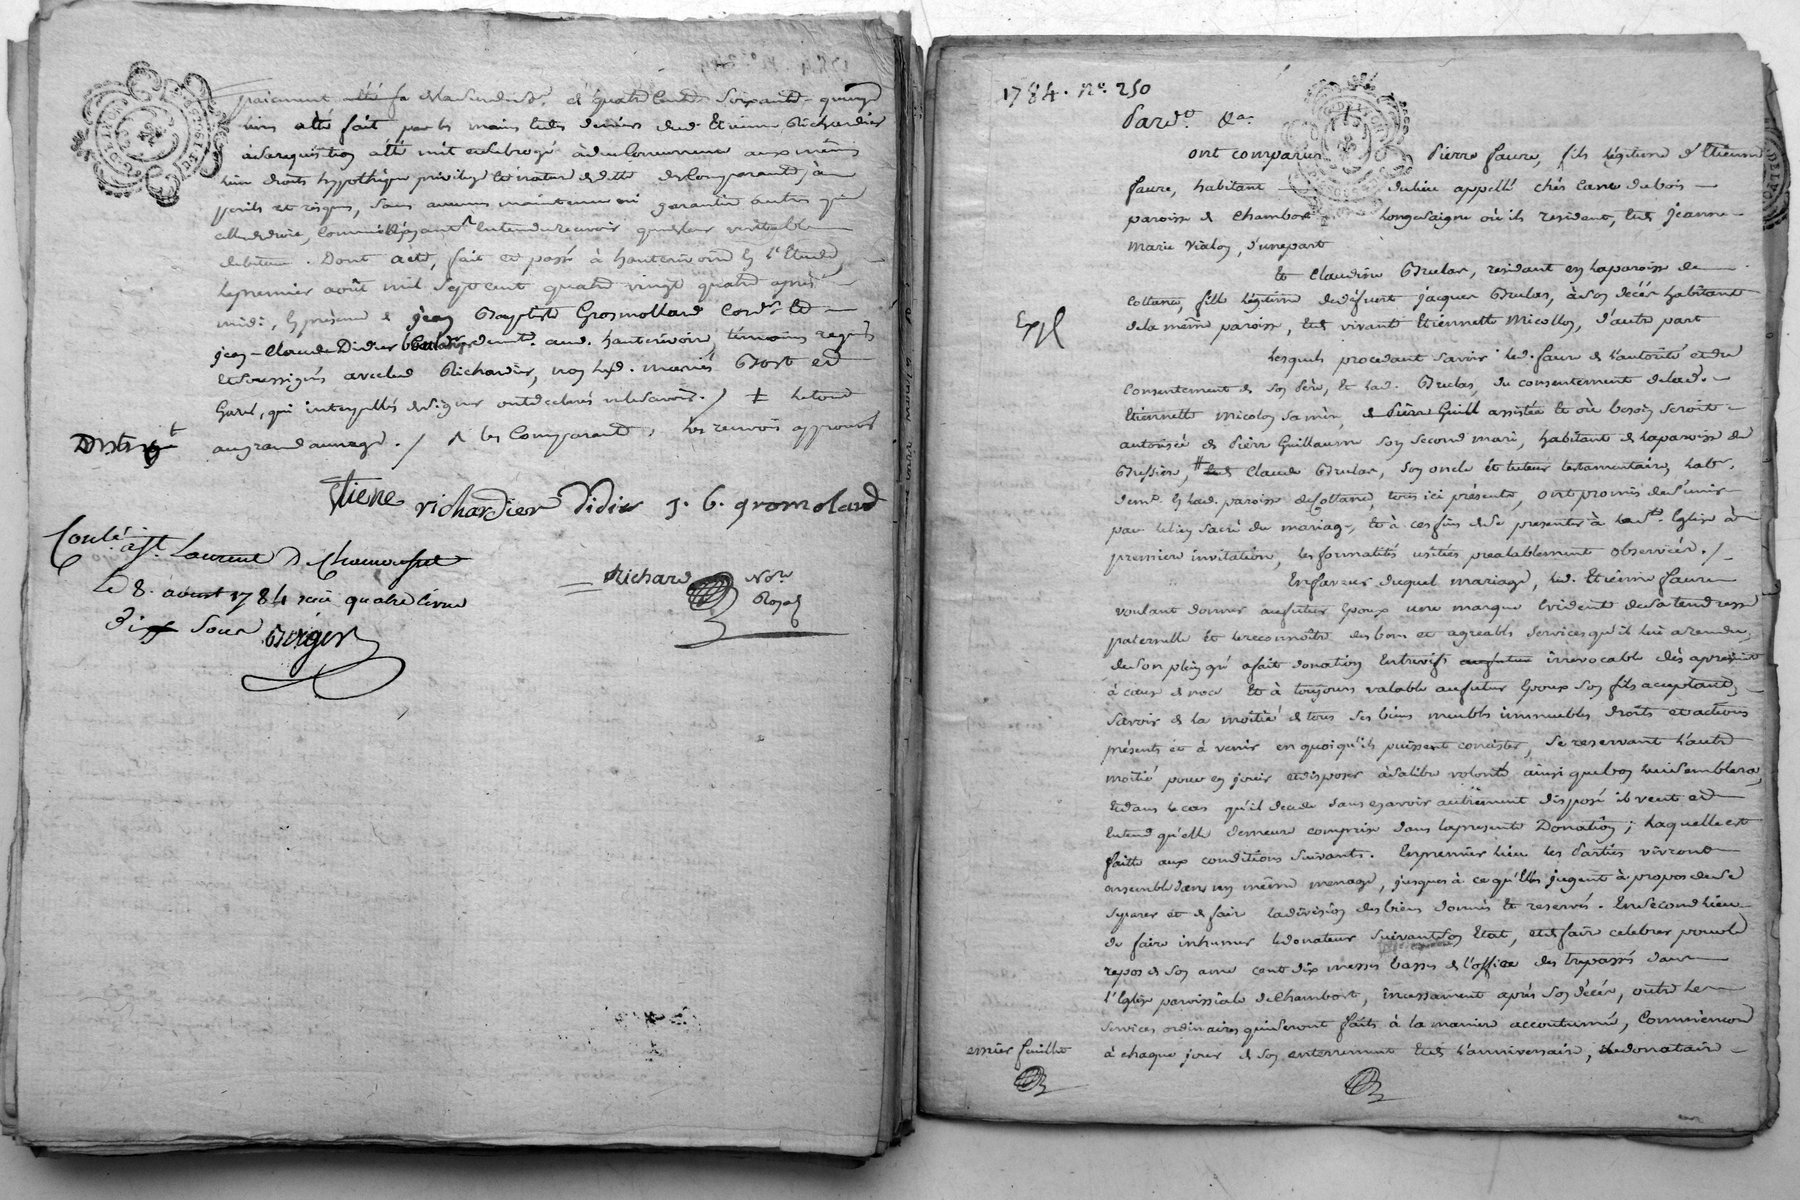 paiement et quatre cent soixante quinze
livres a été fait par les mains et des deniers dud. Etienne Richardier
à sa requisition a été mis et subrogé aux mêmes
lieu droits hypothèque privilege et nature de dette à ses
perils et risques, sans aucune maintenue ni garantie autre que
de droit, entendu recevoir que de leur veritable
debiteur. Dont acte, fait et passé à hauterivoire en l'Etude,
le premier août mil sept cent quatre vingt quatre après
midi, en présence de jean Baptiste Gromolland Cord. et
jean-Claude Didier demt. aud. hauterivoire, témoins requis
et soussignés avec led Richardier, non les d. mariés Bost et
qui interpellés de signer ont déclarés ne le savoir. / ≠ le tout
au grand aunage. / les Comparants, les renvois approuvés
Etiene richardier Didier J. B. gromoland
Controlé à St. Laurent De Chamousset
Le 8. aoust 1784 reçu quatre livre
Dix sous Berger
Richard Nore.
Royal
1784. No. 250
Pardt. &a.
ont comparus Pierre faure, fils légitime d'Etienne
faure, habitant du lieu appellé chés Carre dubois
paroisse de Chambost Longesaigne où ils resident, et de Jeanne
Marie Vialon, d'une part
Et Claudine Brulas, residant en la paroisse de
Cottance, fille légitime de deffunt jacques Brulas, à son décés habitant
de la même paroisse, et de vivante Etiennette Micollon, d'autre part
Expé
Lesquels procedant savoir led. faure de l'autorité et du
Consentement de son Père, et lad. Brulas, du consentement de lad.
Etiennette Micolon sa mère, de Pierre Guill assistée et où besoin seroit
autorisée de Pierre Guillaume son second mari, habitant de la paroisse de
Bussiere, # et de Claude Brulas, son oncle et tuteur testamentaire, habt.
demt. en lad. paroisse de Cottance, tous ici présents, ont promis de s'unir
par le lien sacré du mariage, et à ces fins de se presenter à la Ste. Eglise à
premiere invitation, les formalités usitées prealablement observées. /
En faveur duquel mariage, led. Etienne faure
voulant donner au futur Epoux une marque Evidente de sa tendresse
paternelle et le reconnoître des bons et agreables services qu'il lui a rendu,
de son plein gré a fait donation Entrevifs au futur irrevocable dès apresent
à cause de noce et à toujours valable au futur Epoux son fils acceptant,
savoir de la moitié de tous ses biens meubles immeubles droits et actions
présents et à venir en quoi qu'ils puissent consister, se reservant l'autre
moitié pour en jouir et disposer à sa libre volonté ainsi que bon lui semblera,
et dans le cas qu'il decede sans en avoir autrement disposé il veut et
Entend qu'elle demeure comprise dans la presente Donation; laquelle est
faitte aux conditions suivantes. En premier lieu les Parties vivront
ensemble dans un même menage, jusques à ce qu'Elles jugent à propos de se
séparer et de faire la division des biens donnés et reservés. En second lieu
de faire inhumer le donateur suivant son Etat, et de faire celebrer pour le
repos de son ame cent dix messes basses de l'office des trepassés dans
l'Eglise paroissiale de Chambost, incessament après son décés, outre les
services ordinaires qui seront faits à la maniere accoutumée, Commencera
à chaque jour de son enterrement et de l'anniversaire, le donataire
emier feuillet